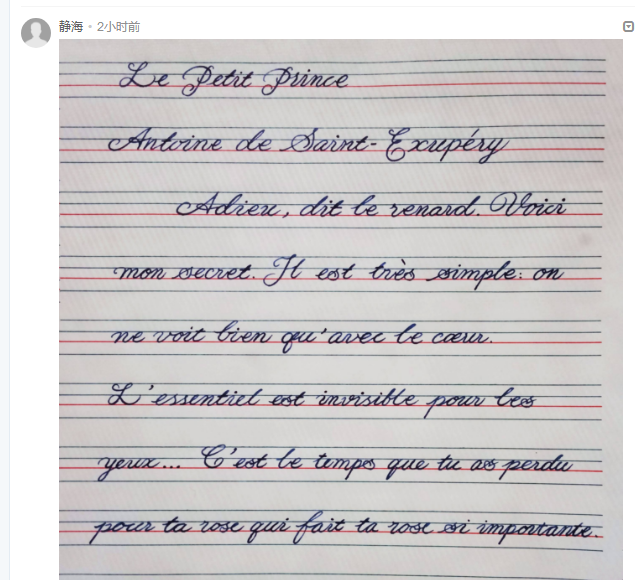 静海 • 2小时前
Le Petit Prince
Antoine de Saint-Exupéry
Adieu, dit le renard. Voici
mon secret. Il est très simple: on
ne voit bien qu'avec le cœur.
L'essentiel est invisible pour les
yeux... C'est le temps que tu as perdu
pour ta rose qui fait ta rose si importante.